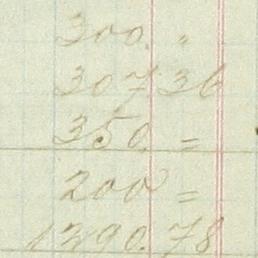 300. "
307.36
350. =
200 =
1290.78